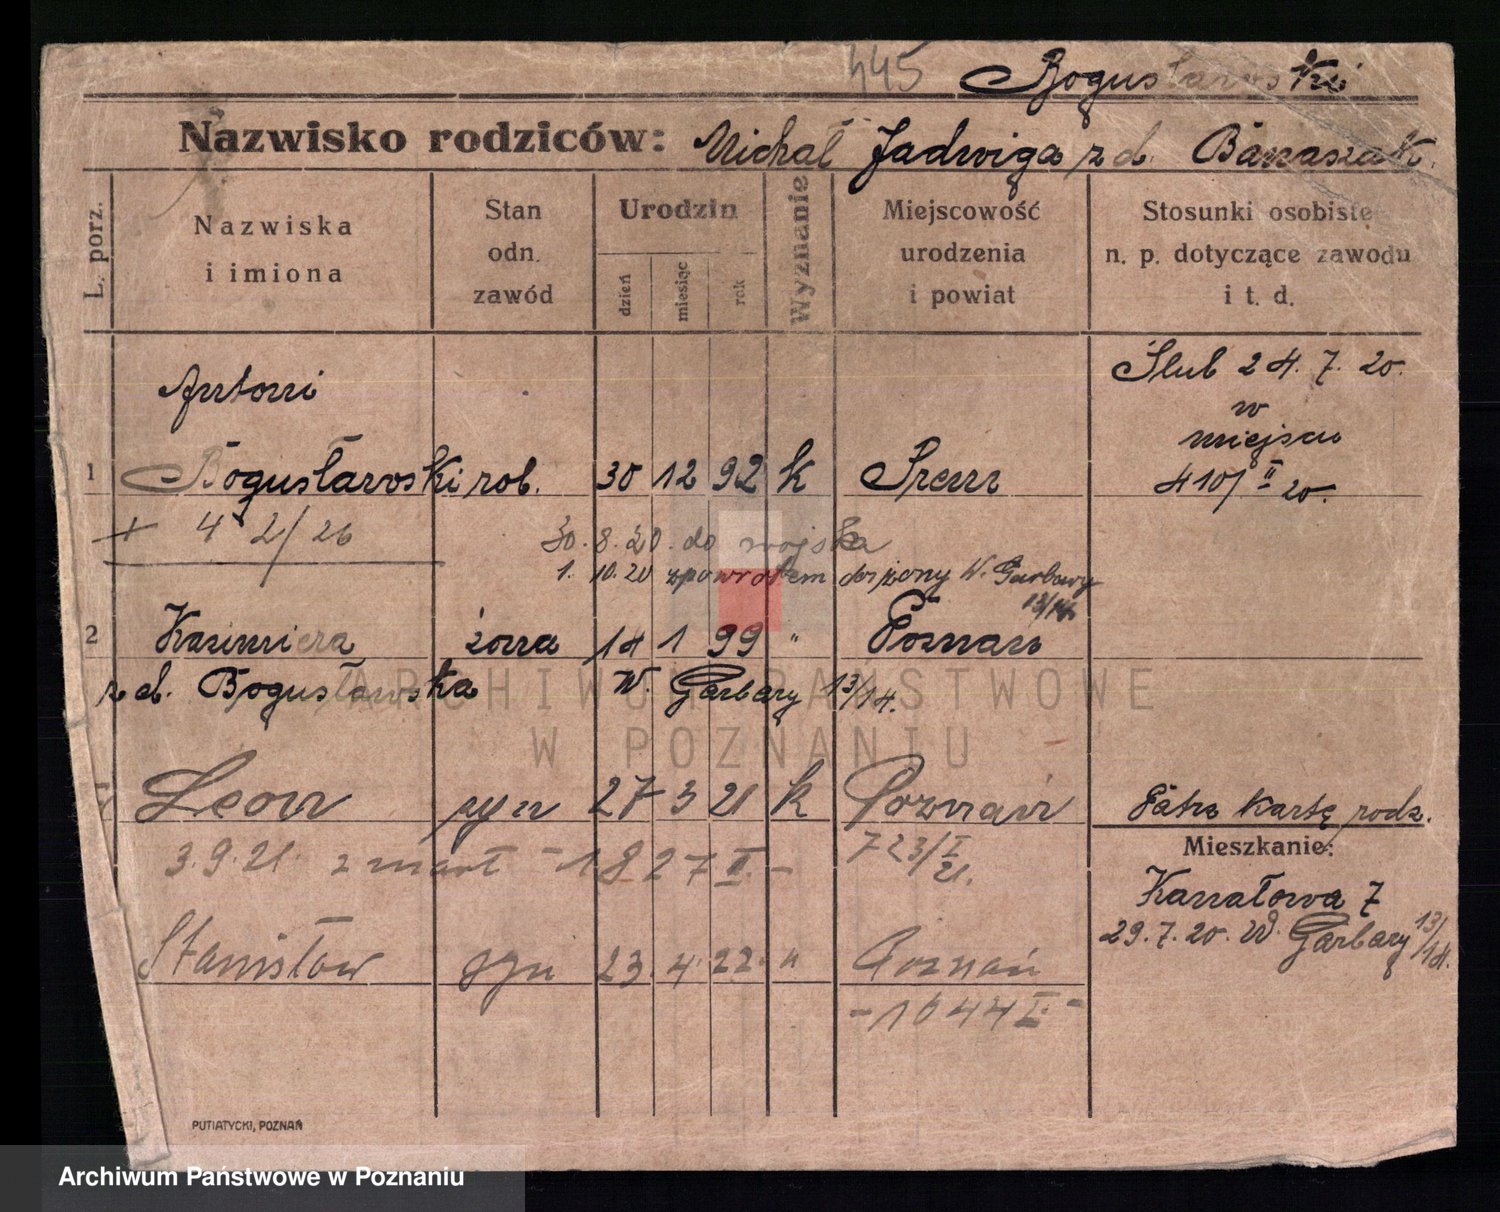 445 Bogusławski
Nazwisko rodziców: Michał Jadwiga z d. Banaszak.
L. porz.
Nazwiska i imiona
Stan odn. zawód
Urodzin
dzień
miesiąc
rok
Wyznanie
Miejscowość urodzenia i powiat
Stosunki osobiste n. p. dotyczące zawodu i t. d.
Antoni
Ślub 24. 7. 20.
w
miejscu
410/II 20.
1 Bogusławski rob. 30 12 92 k Śrem
+ 4 2/26
30. 8. 20. do wojska
1. 10. 20 zpowrotem do żony W. Garbary
13/14.
2 Kazimiera żona 14 1 99 " Poznań
z d. Bogusławska W. Garbary 13/14.
Leon syn 27 3 21 k Poznań
723/I 21.
3. 9. 21. zmarł - 1827 II. -
Patrz kartę rodz.
Mieszkanie:
Kanałowa 7
29. 7. 20. W. Garbary 13/14.
Stanisław syn 23. 4. 22. " Poznań
- 1644 I. -
PUTIATYCKI, POZNAŃ
ARCHIWUM PAŃSTWOWE
W POZNANIU
Archiwum Państwowe w Poznaniu